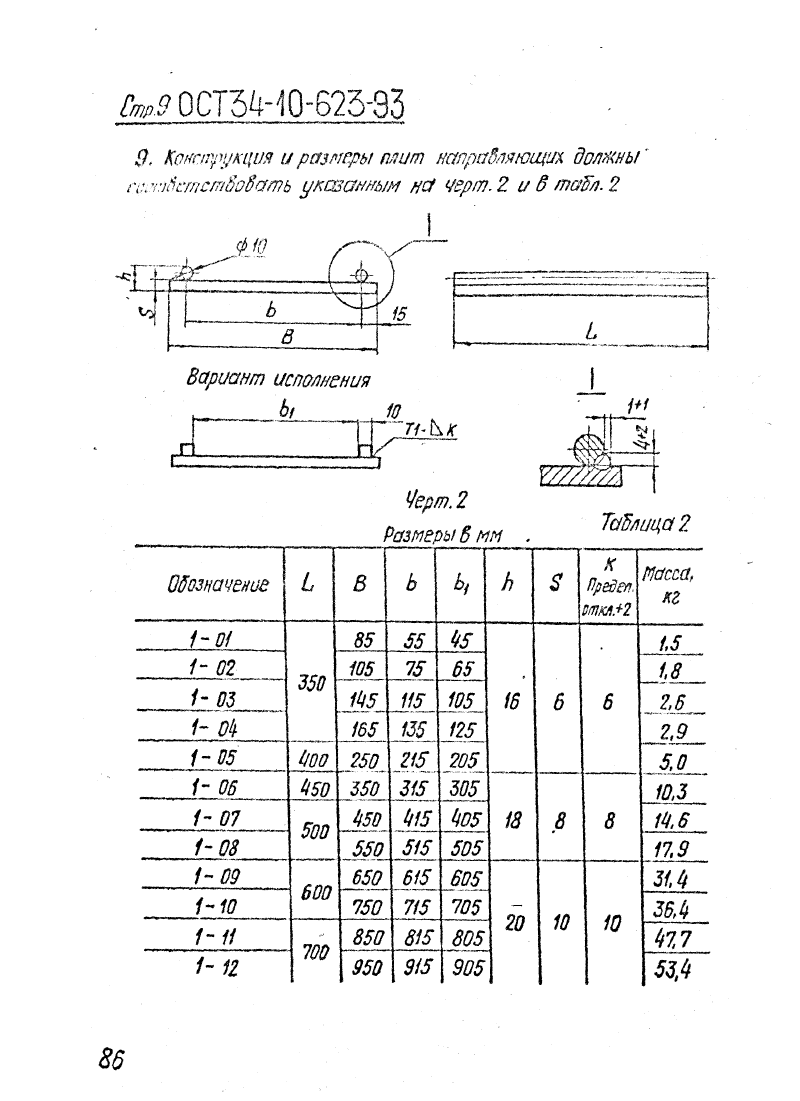 Стр.9 ОСТ34-10-623-93
9. Конструкция и размеры плит направляющих должны
соответствовать указанным на черт. 2 и в табл. 2
I
ϕ10
h
S
b
15
B
L
Вариант исполнения
I
b₁
10
Т1-◺К
1+1
4+2
Черт. 2
Таблица 2
Размеры в мм
Обозначение L B b b₁ h S К Предел. откл.+2 Масса, кг
1-01 350 85 55 45 16 6 6 1,5
1-02 105 75 65 1,8
1-03 145 115 105 2,6
1-04 165 135 125 2,9
1-05 400 250 215 205 5,0
1-06 450 350 315 305 18 8 8 10,3
1-07 500 450 415 405 14,6
1-08 550 515 505 17,9
1-09 600 650 615 605 20 10 10 31,4
1-10 750 715 705 36,4
1-11 700 850 815 805 47,7
1-12 950 915 905 53,4
86